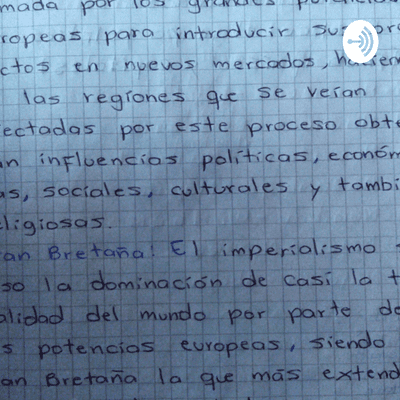 mada por los grandes
ropeas para introducir su
ctos en nuevos mercados,
las regiones que se verían
ectadas por este proceso obt
an influencias políticas, económ
as, sociales, culturales y tambi
ligiosas.
an Bretaña: El imperialismo
so la dominación de casi la t
alidad del mundo por parte de
s potencias europeas, siendo
an Bretaña la que más extend